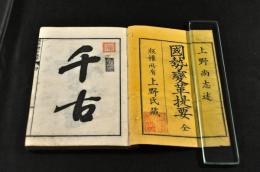 上野尚志述
國勢變革提要 全
版権所有 上野氏蔵
千古